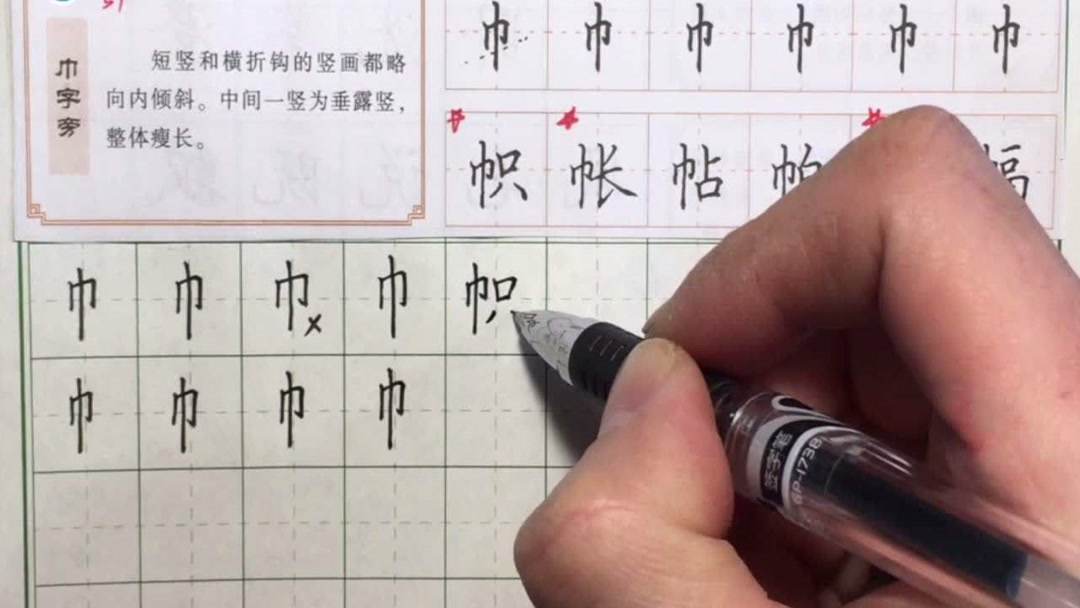 巾字旁
短竖和横折钩的竖画都略
向内倾斜。中间一竖为垂露竖，
整体瘦长。
巾 巾 巾 巾 巾 巾
帜 帐 帖 帕 幅
巾 巾 巾 x 巾 帜
巾 巾 巾 巾
签字笔
GP-1738